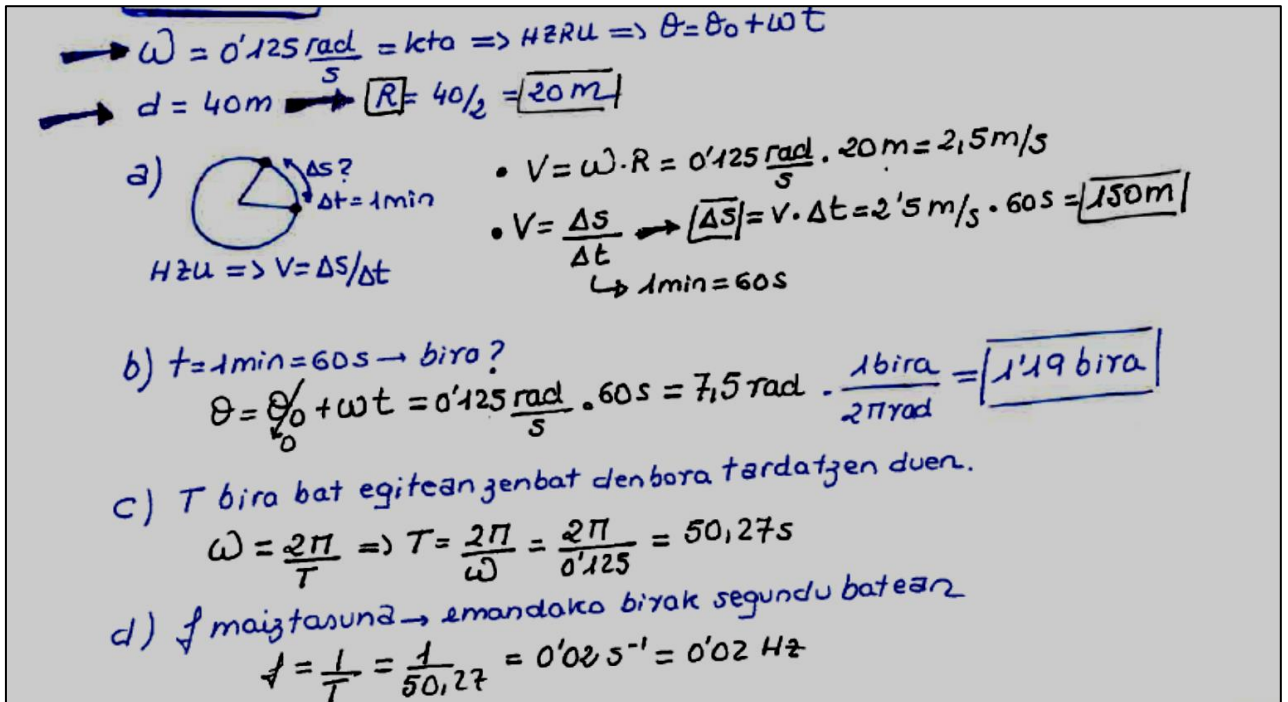 ω = 0'125 rad/s = kte => HZRU => θ = θ₀ + ωt
d = 40m → R = 40/2 = 20 m
a) Δs? Δt = 1min
HZU => V = Δs/Δt
• V = ω·R = 0'125 rad/s · 20m = 2,5 m/s
• V = Δs/Δt → Δs = V·Δt = 2'5 m/s · 60s = 150m
↳ 1min = 60s
b) t = 1min = 60s → bira?
θ = θ₀ + ωt = 0'125 rad/s · 60s = 7,5 rad · 1bira/2π rad = 1'19 bira
0
c) T bira bat egitean zenbat denbora tardatzen duen.
ω = 2π/T => T = 2π/ω = 2π/0'125 = 50,27s
d) f maiztasuna → emandako birak segundu batean
f = 1/T = 1/50,27 = 0'02 s⁻¹ = 0'02 Hz